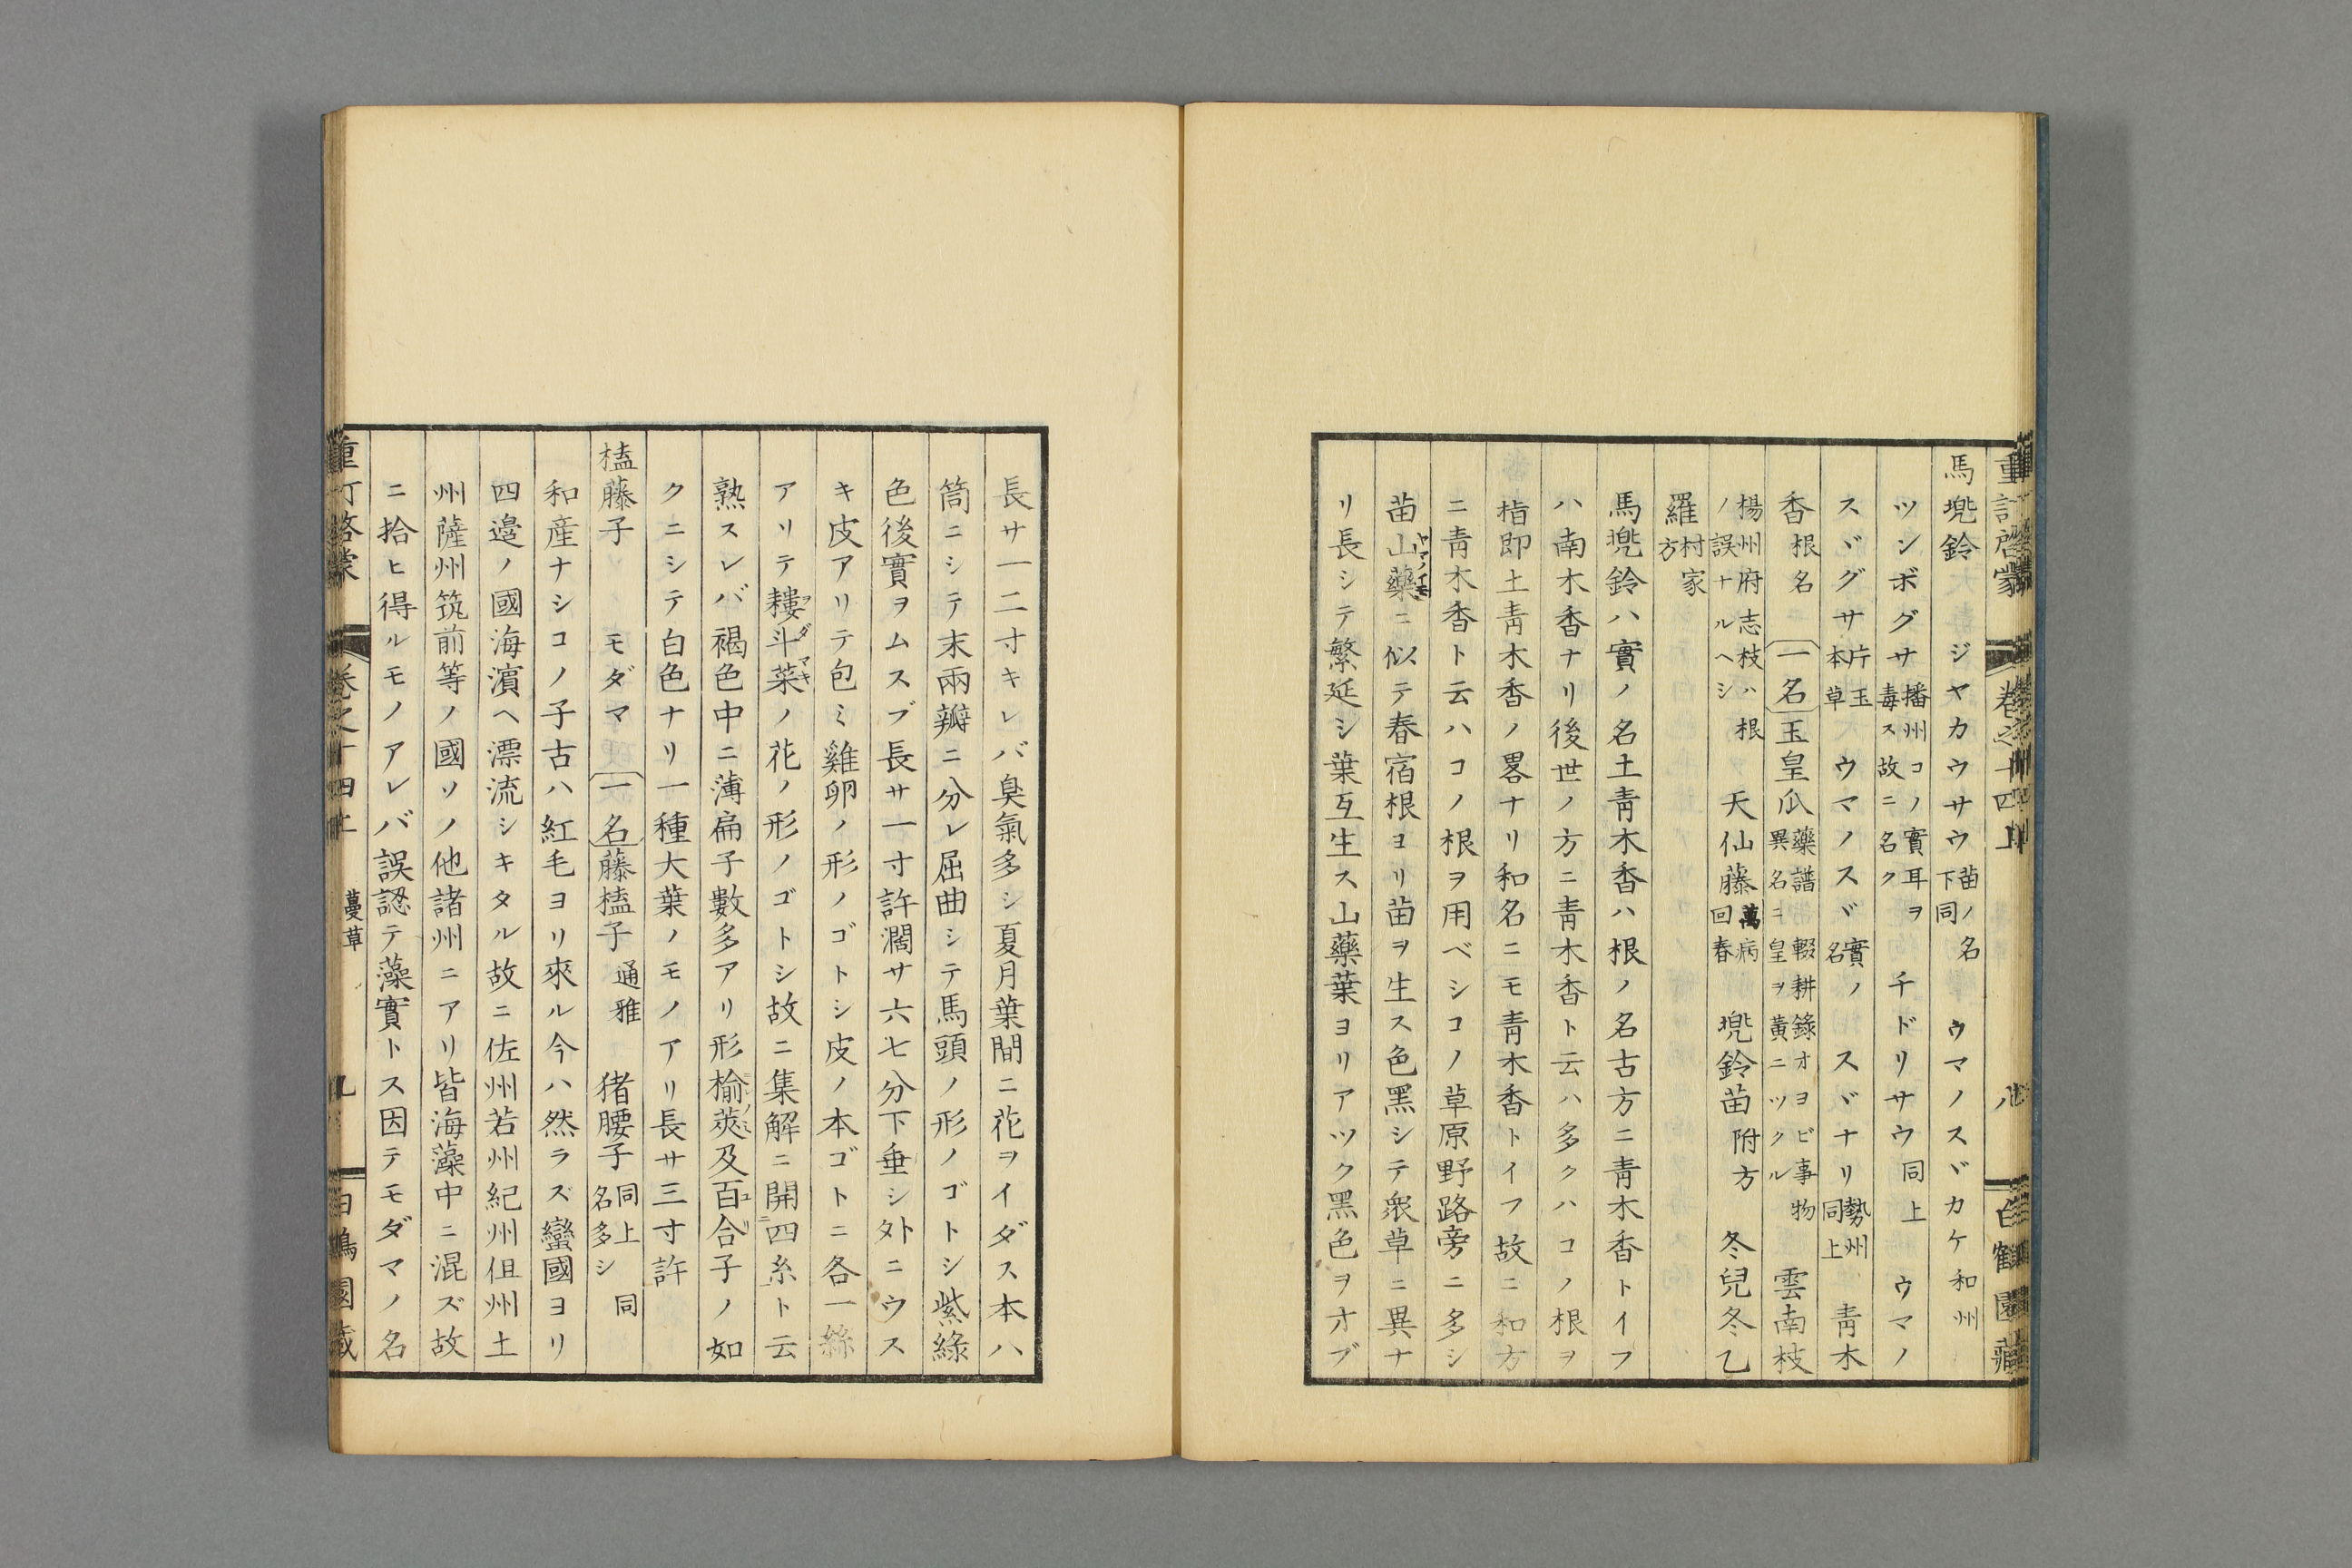 重訂啓蒙 卷之十四上 八 白鶴園藏
馬兠鈴 ジヤカウサウ苗ノ名下同 ウマノスヾカケ和州
ツンボグサ播州コノ實耳ヲ毒ス故ニ名ク 千ドリサウ同上 ウマノ
スヾグサ片玉本草 ウマノスヾ實ノ名 スヾナリ勢州同上 青木
香根名 一名玉皇瓜藥譜異名ニ輟耕錄オヨビ事物皇ヲ黃ニツクル 雲南枝
楊州府志枝ハ根ノ誤ナルヘシ 天仙藤萬病回春 兠鈴苗附方 冬兒冬乙
羅村家方
馬兠鈴ハ實ノ名土青木香ハ根ノ名古方ニ青木香トイフ
ハ南木香ナリ後世ノ方ニ青木香ト云ハ多クハコノ根ヲ
指即土青木香ノ畧ナリ和名ニモ青木香トイフ故ニ和方
ニ青木香ト云ハコノ根ヲ用ベシコノ草原野路旁ニ多シ
苗山藥ヤマノイモニ似テ春宿根ヨリ苗ヲ生ス色黑シテ衆草ニ異ナ
リ長シテ繁延シ葉互生ス山藥葉ヨリアツク黑色ヲオブ
長サ一二寸キレバ臭氣多シ夏月葉間ニ花ヲイダス本ハ
筒ニシテ末兩瓣ニ分レ屈曲シテ馬頭ノ形ノゴトシ紫綠
色後實ヲムスブ長サ一寸許濶サ六七分下垂シ外ニウス
キ皮アリテ包ミ雞卵ノ形ノゴトシ皮ノ本ゴトニ各一絲
アリテ耬斗菜ヲダマキノ花ノ形ノゴトシ故ニ集解ニ開四系ト云
熟スレバ褐色中ニ薄扁子數多アリ形榆莢ニレノミ及百合ユリ子ノ如
クニシテ白色ナリ一種大葉ノモノアリ長サ三寸許
榼藤子 モダマ 一名藤榼子通雅 猪腰子同上同名多シ
和產ナシコノ子古ハ紅毛ヨリ來ル今ハ然ラズ蠻國ヨリ
四邉ノ國海濵ヘ漂流シキタル故ニ佐州若州紀州但州土
州薩州筑前等ノ國ソノ他諸州ニアリ皆海藻中ニ混ズ故
ニ拾ヒ得ルモノアレバ誤認テ藻實トス因テモダマノ名
重訂啓蒙 卷之十四上 蔓草 九 白鶴園藏